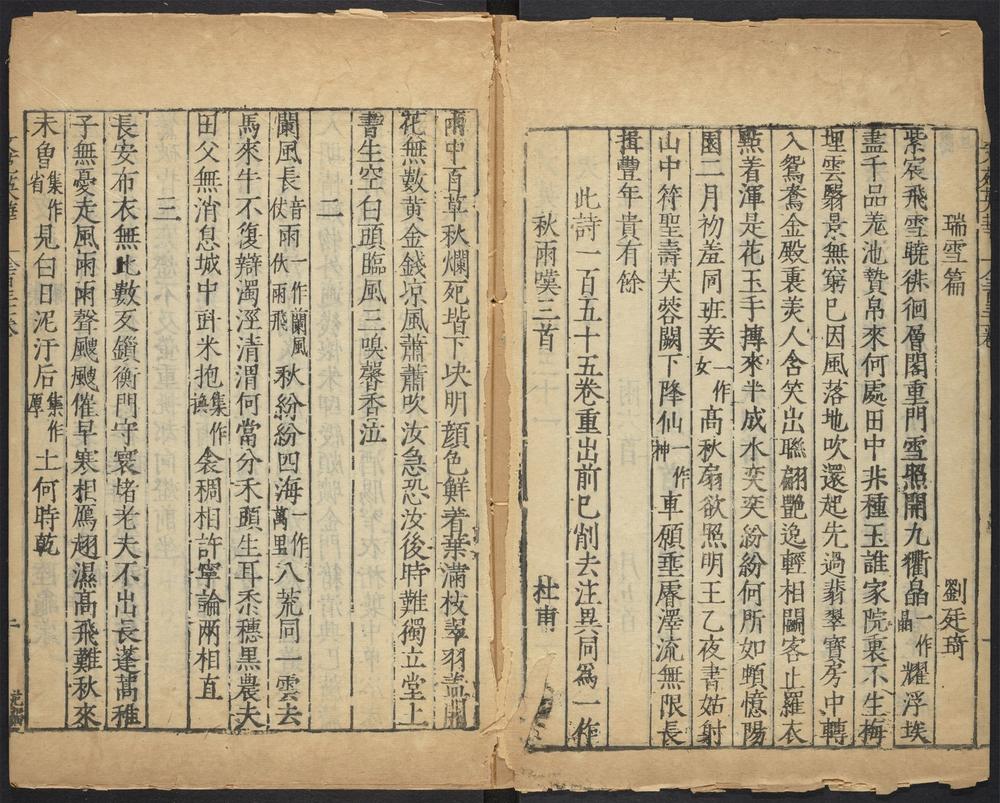 瑞雪篇 劉廷琦
紫宸飛雪曉徘徊層閣重門雪照開九衢皛一作晶耀浮埃
盡千品差池贄帛來何處田中非種玉誰家院裏不生梅
埋雲翳景無窮已因風落地吹還起先過翡翠寶房中轉
入鴛鴦金殿裏美人含笑出聯翩艷逸輕相鬬客止羅衣
點着渾是花玉手摶來半成水奕奕紛紛何所如頓憶陽
園二月初羞同班妾一作女高秋扇欲照明王乙夜書姑射
山中符聖壽芙蓉闕下降仙一作神車願垂膺澤流無限長
揖豐年貴有餘
此詩一百五十五卷重出前已削去注異同爲一作
秋雨嘆三首 杜甫
雨中百草秋爛死堦下決明顔色鮮着葉滿枝翠羽蓋
花無數黄金錢凉風蕭蕭吹汝急恐汝後時難獨立堂上
書生空白頭臨風三嗅馨香泣
二
闌風長音仗雨一作闌風伏雨飛秋紛紛四海一作萬里八荒同一雲去
馬來牛不復辯濁涇清渭何當分禾頭生耳黍穗黒農夫
田父無消息城中㪷米抱集作換衾稠相許寧論兩相直
三
長安布衣無比數反鎖衡門守寰堵老夫不出長蓬蒿稚
子無憂走風雨雨聲颼颼催早寒相鴈翅濕高飛難秋來
未曽集作省見白日泥汙后集作厚土何時乾